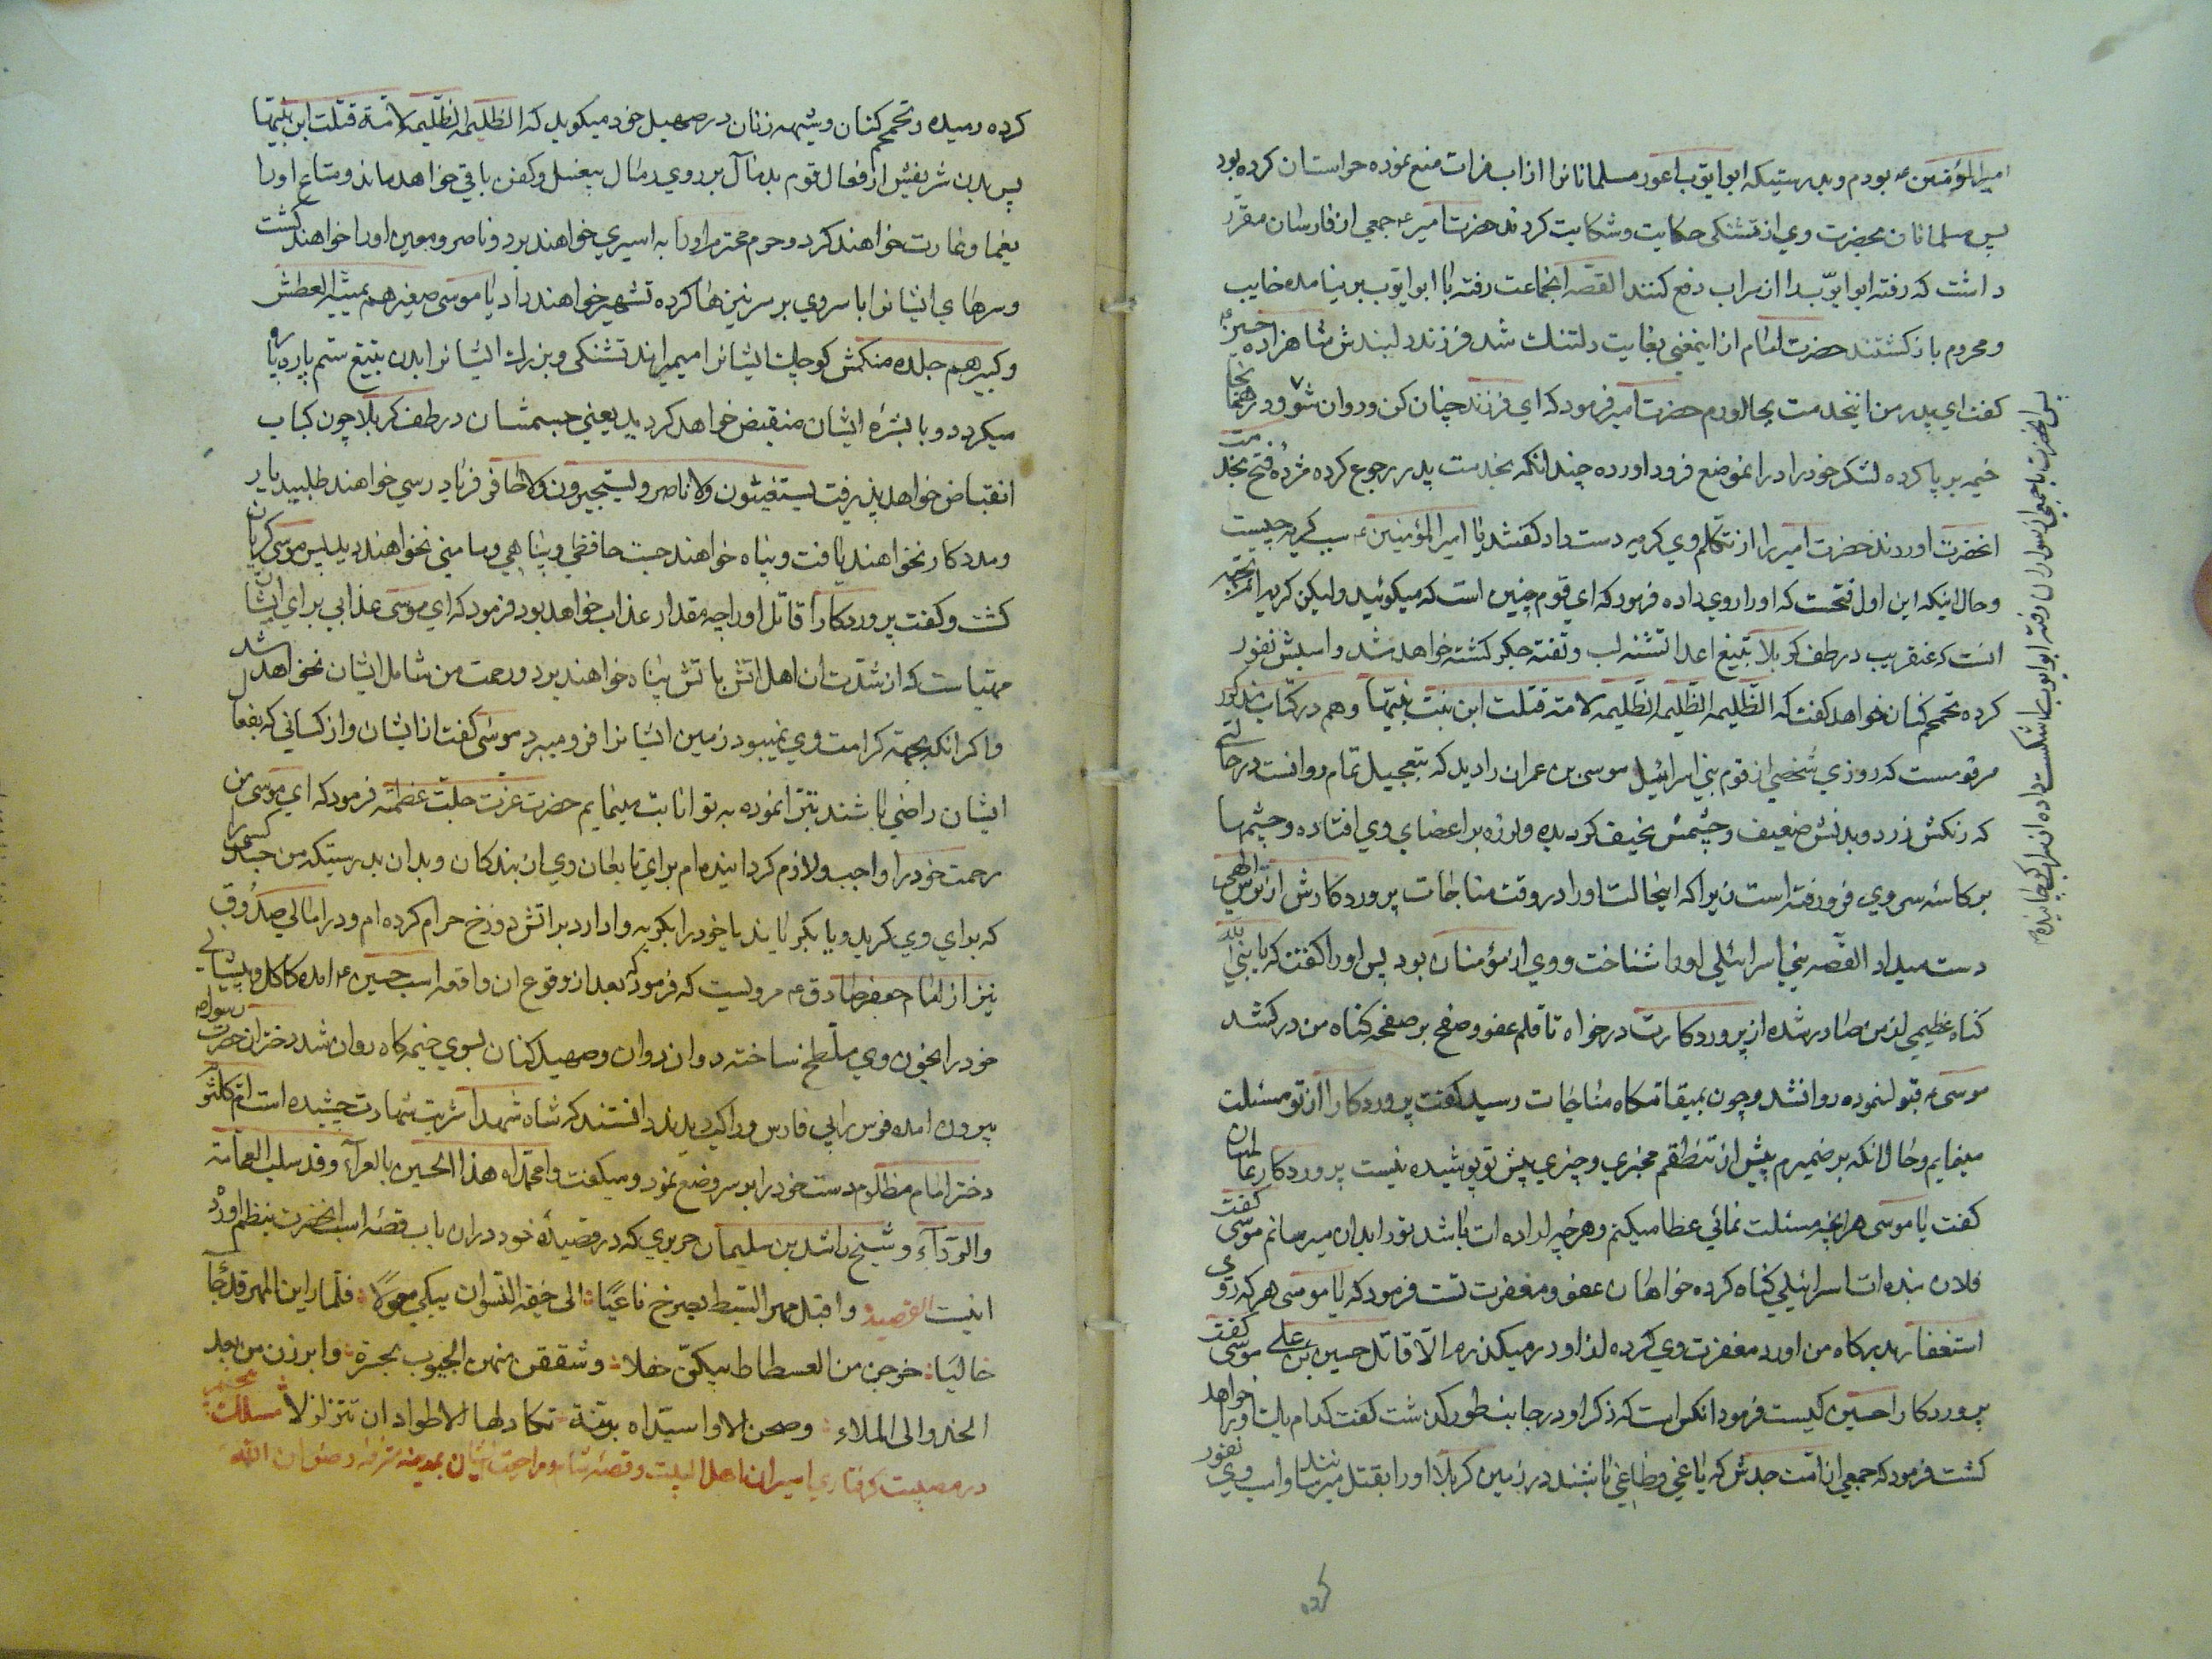 امیرالمؤمنین ع بودم وبدرستیکه ابوایوب اعور مسلمانانرا از اب فرات منع نموده حراستان کرده بود
پس مسلمانان بحضرت وی از تشنکی حکایت وشکایت کردند حضرت امیر ع جمعی از فارسان مقرر
داشت که رفته ابو ایوب را از سراب دفع کنند القصه انجماعت رفته با ابو ایوب برنیامده خایب
ومحروم بازکشتند حضرت امام از اینمعنی بغایت دلتنك شد فرزند دلبندش شاهزاده حسین ع
کفت ای پدر من اینخدمت بجااورم حضرت امیر فرمود که ای فرزند چنان کن وروان شو ودر همانجا
خیمه برپا کرده لشکر خود را درانموضع فرود اورده چندانکه بخدمت پدر رجوع کرده مژدۀ فتح بخدمت
انحضرت اوردند حضرت امیر را از تکلم وی کریه دست داد کفتند یا امیرالمؤمنین ع سبب کریه چیست
وحال اینکه این اول فتحست که اورا روی داده فرمود که ای قوم چنین است که میکوئید ولیکن کریه من از انجهة
انست که عنقریب در طف کربلا بتیغ اعدا تشنه لب وتفته جکر کشته خواهد شد واسبش نفور
کرده تحمحم کنان خواهد کفت که الظلیمه الظلیمه الظلیمه لامة قتلت ابن بنت نبیها وهم در کتاب مذکور
مرقومست که روزی شخصی از قوم بنی اسرائیل موسی بن عمران را دید که بتعجیل تمام روانست در حالتی
که رنکش زرد وبدنش ضعیف وچشمش نحیف کردیده ولرزه بر اعضای وی افتاده وچشمها
بر کاسه سر وی فرو رفته است زیرا که اینحالت اورا در وقت مناجات پروردکارش از ترس الهی
دست میداد القصه بنی اسرائیلی اورا شناخت ووی از مؤمنان بود پس اورا کفت که یا نبی الله
کناه عظیمی از من صادر شده از پروردکارت درخواه تا قلم عفو وصفح بر صفحه کناه من درکشد
موسی ع قبول نموده روانشد وچون بمیقاتکاه مناجات رسید کفت پروردکارا از تو مسئلت
مینمایم وحال انکه بر ضمیرم پیش از تنطقم مخبری وچیزی پیش تو پوشیده نیست پروردکار عالمیان
کفت یا موسی هرانچه مسئلت نمائی عطا میکنم وهرچه اراده ات باشد تورا بدان میرسانم موسی کفت
فلان بنده ات اسرائیلی کناه کرده خواهان عفو ومغفرت تست فرمود که یا موسی هر که روی
استغفار بدرکاه من اورد مغفرت وی کرده از او درمیکذرم الا قاتل حسین بن علی موسی کفت
پروردکارا حسین کیست فرمود انکس است که ذکر او در جانب طور کذشت کفت کدام یك اورا خواهد
کشت فرمود که جمعی از امت جدش که یاغی وطاغی باشند در زمین کربلا اورا بقتل میرسانند واسب وی نفور
کرده
پس انحضرت با جمعی از سواران رفته ابو ایوب را شکست داده از سراب کوچانیده
کرده رمیده وتحمحم کنان وشیهه زنان در صهیل خود میکوید که الظلیمه الظلیمه لامة قتلت ابن بنت نبیها
پس بدن شریفش از فعال قوم بدمآل بر روی رمال بیغسل وکفن باقی خواهد ماند ومتاع اورا
یغما وغارت خواهند کرد وحرم محترم اورا به اسیری خواهند برد وناصر ومعین اورا خواهند کشت
وسرهای ایشانرا با سر وی بر سر نیزها کرده تشهیر خواهند داد یا موسی صغیرهم یمیته العطش
وکبیرهم جلده منکمش کوچك ایشانرا میمیراند تشنکی وبزرك ایشانرا بدن بتیغ ستم پاره پاره
میکردد وبا بشرۀ ایشان منقبض خواهد کردید یعنی جسمشان در طف کربلا چون کباب
انقباض خواهد پذیرفت یستغیثون ولا ناصر ویستجیرون ولا خافر فریادرسی خواهند طلبید یار
ومددکار نخواهند یافت وپناه خواهند جست حافظی وپناهی ومامنی نخواهند دید پس موسی کریان
کشت وکفت پروردکارا قاتل اورا چه مقدار عذاب خواهد بود فرمود که ای موسی عذابی برای ایشان
مهیاست که از شدت ان اهل اتش باتش پناه خواهند برد ورحمت من شامل ایشان نخواهد شد
واکر انکه بجهة کرامت وی نمیبود زمین ایشانرا فرو میبرد موسی کفت از ایشان واز کسانی که بفعل
ایشان راضی باشند تبرا نموده به تو انابت مینمایم حضرت عزت جلت عظمته فرمود که ای موسی من
رحمت خود را واجب ولازم کردانیده ام برای تابعان وی از بندکان وبدان بدرستیکه من جسد کسیرا
که برای وی کرید ویا بکریاند یا خود را بکریه وادارد بر اتش دوزخ حرام کرده ام ودر امالی صدوق
نیز از امام جعفر صادق ع مرویست که فرمود که بعد از وقوع ان واقعه اسب حسین ع امده کاکل وپیشانی
خود را بخون وی ملطخ ساخته دوان دوان وصهیل کنان بسوی خیمه کاه روان شد دختران حضرت رسول
بیرون امده فرس را بی فارس وراکب دیدند دانستند که شاه شهدا شربت شهادت چشیده است ام کلثوم
دختر امام مظلوم دست خود را بر سر وضع نمود ومیکفت وامحمداه هذا الحسین بالعراء وقد سلب العمامة
والرداء وشیخ راشد بن سلیمان جریری که در قصیدۀ خود دران باب قصۀ اسب انحضرت بنظم اورد
اینست القصیده واقبل مهر السبط یصرخ ناعیًا الی خیمة النسوان یبکی معولًا فلما راین المهر قد جا
خالیًا خرجن من الفسطاط یبکین وشققن منهن الجیوب بحسرة وابرزن من بعد
الخدر الی الملاء وصحن الا واسیداه برنة تکاد لها الاطواد ان تتزلزلا مسلك
در مصیبت کرفتاری اسیران اهل البیت وقصه شام ومراجعت ایشان بمدینه مشرفه رضوان الله